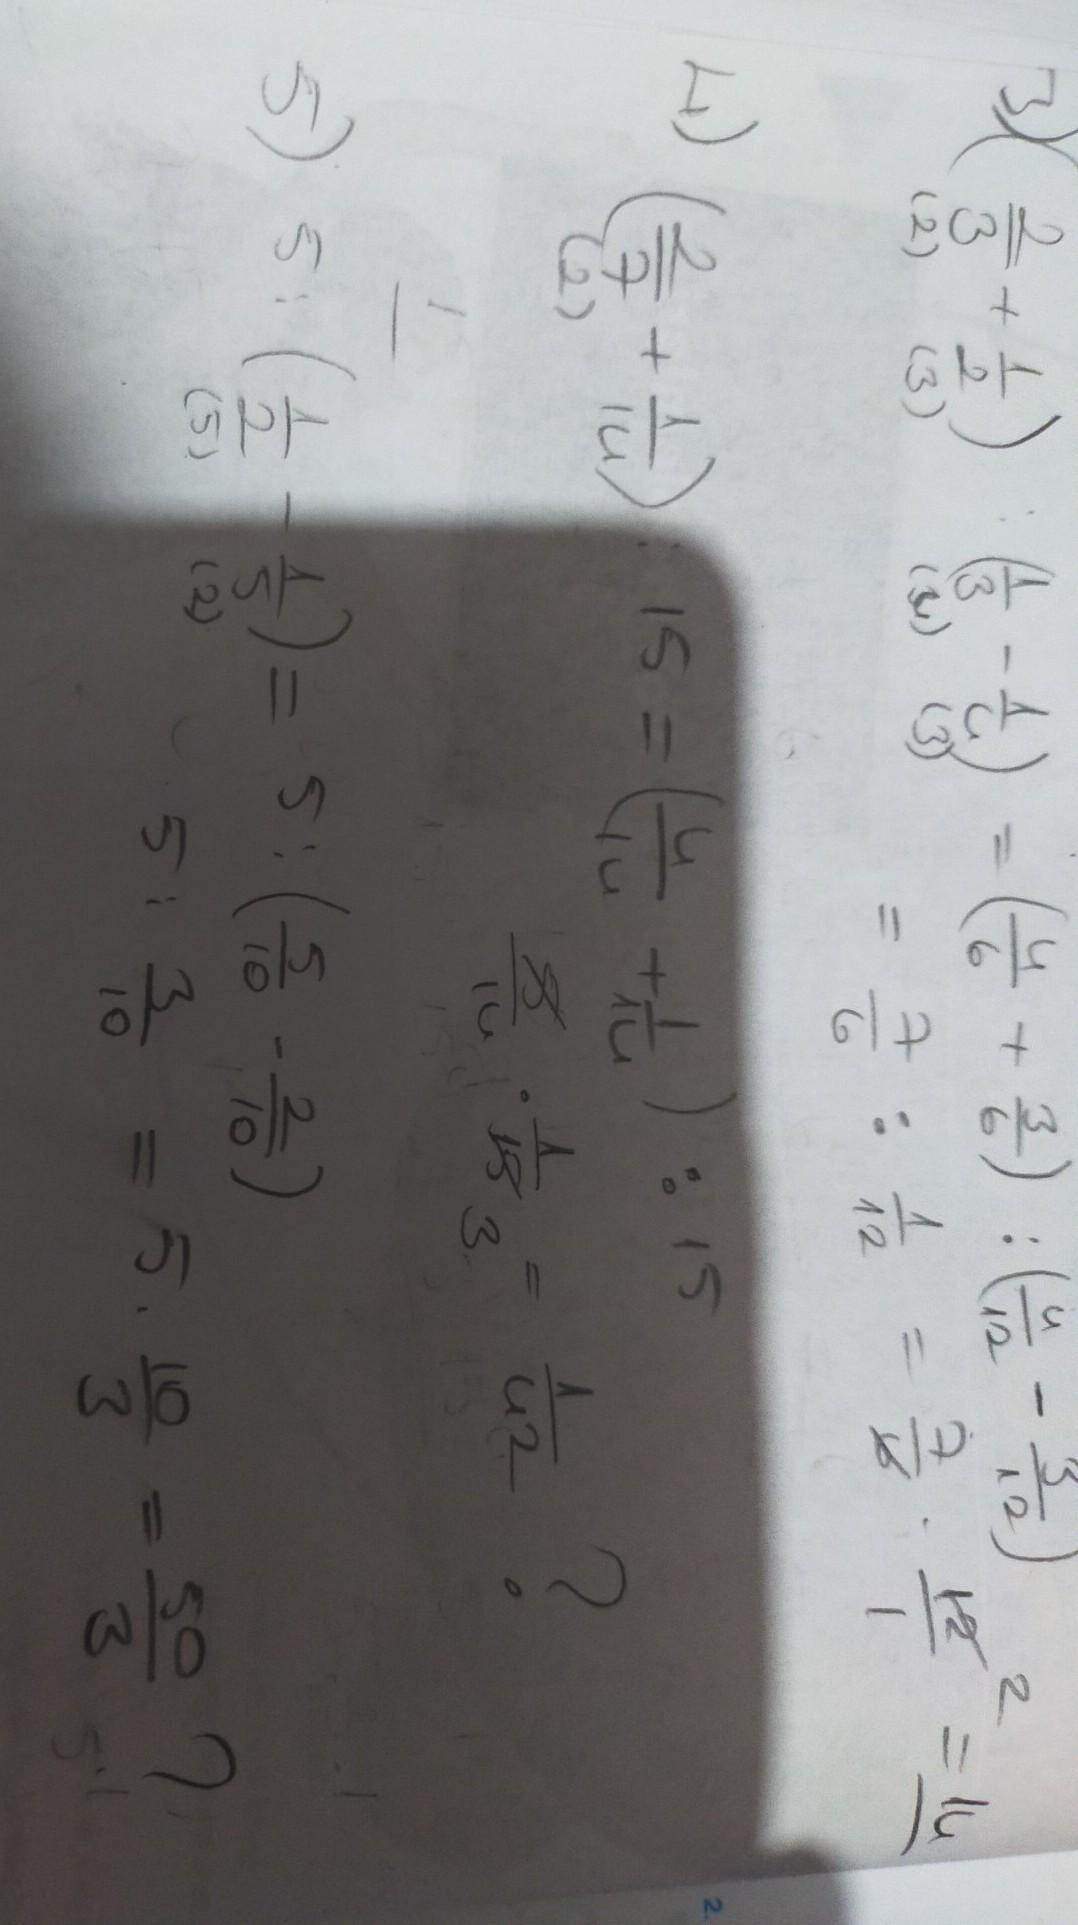 3) (2/3 + 1/2) : (1/3 - 1/4) = (4/6 + 3/6) : (4/12 - 3/12)
(2) (3) (4) (3)
= 7/6 : 1/12 = 7/6 · 12/1 2 = 14
4) (2/7 + 1/14) : 15 = (4/14 + 1/14) : 15
(2)
5/14 · 1/15 3 = 1/42 ?
1
5) 5 : (1/2 - 1/5) = 5 : (5/10 - 2/10)
(5) (2)
5 : 3/10 = 5 · 10/3 = 50/3 ?
2.